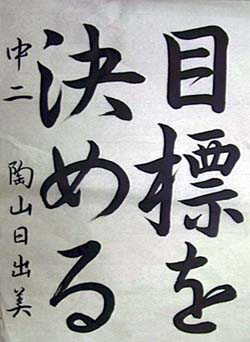 目標を
決める
中二 陶山日出美